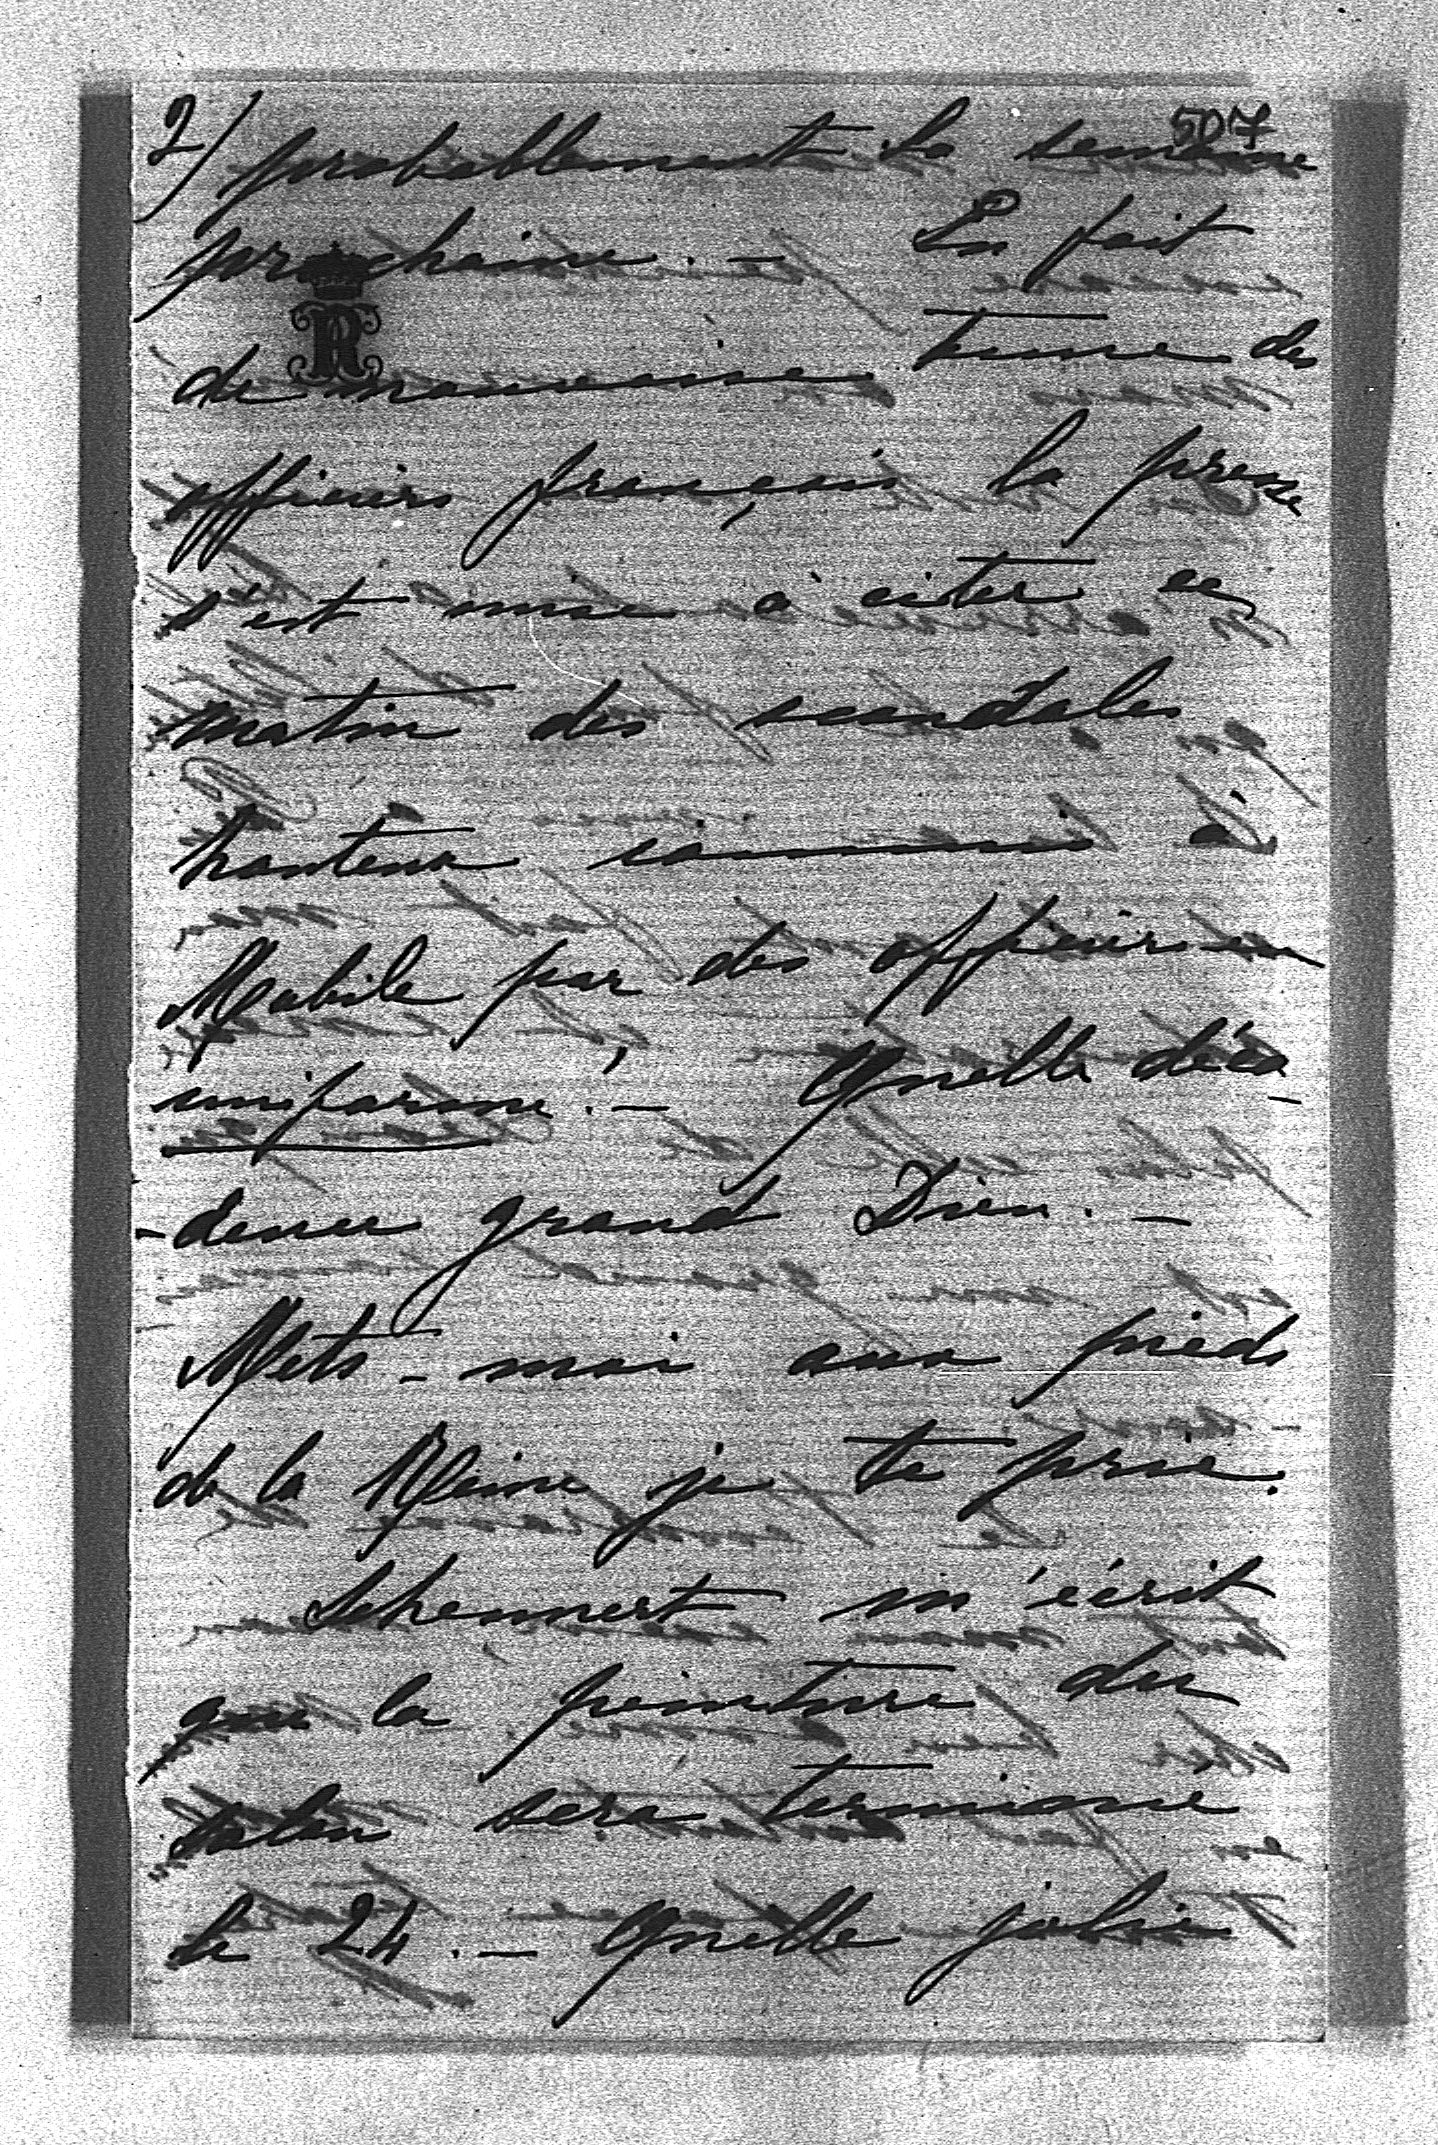 507
2/ probablement la semaine
prochaine. — En fait
R
de mauvaise tenue des
officiers français la presse
s'est mise à citer ce
matin des scandales
honteux commis à
Mabile par des officiers en
uniforme. — Quelle déca-
-dence grand Dieu. —
Mets-moi aux pieds
de la Reine je te prie.
m'écrit
que la peinture du
salon sera terminée
le 24. — Quelle jolie